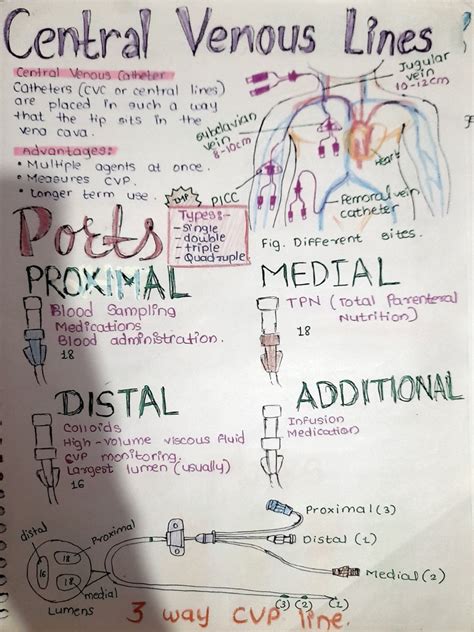 Central Venous Lines
Central Venous Catheter
Catheters (CVC or central lines)
are placed in such a way
that the tip sits in the
vena cava.
Advantages:-
• Multiple agents at once.
• Measures CVP.
• Longer term use.
Jugular
vein
10-12cm
Subclavian
vein
8-10cm
Heart
PICC
Femoral vein
catheter
Fig. Different Sites.
IMP
Types:-
- Single
- double
- triple
- Quadruple.
Ports
PROXIMAL
Blood Sampling
Medications
Blood administration.
18
MEDIAL
TPN (Total Parenteral
Nutrition)
18
DISTAL
Colloids
High-volume viscous fluid
CVP monitoring.
Largest lumen (usually)
16
ADDITIONAL
Infusion
Medication
Proximal (3)
Distal (1)
Medial (2)
distal
Proximal
16
18
18
medial
Lumens
(3) (2) (1)
3 way CVP line.